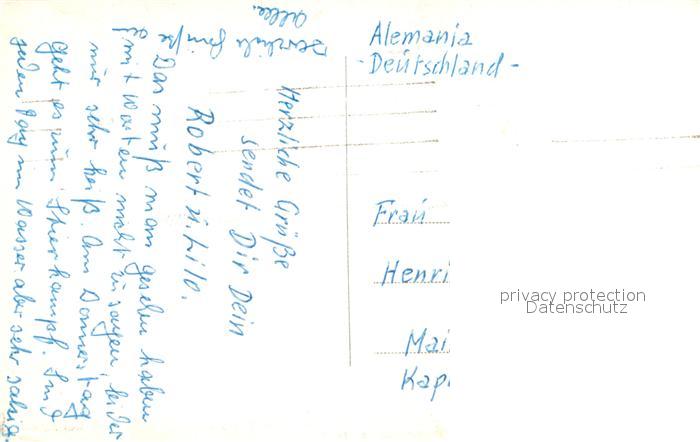 Herzliche Grüße
sendet Dir Dein
Robert u. Lilo.
Das muß man gesehen haben
mit Worten nicht zu sagen, leider
nur sehr heiß. Am Donnerstag
geht es zum Stierkampf. Sind
jeden Tag im Wasser aber sehr salzig.
Herzliche Grüße
alle.
Alemania
-Deutschland-
Frau
Henri
Mai
Kap
privacy protection
Datenschutz